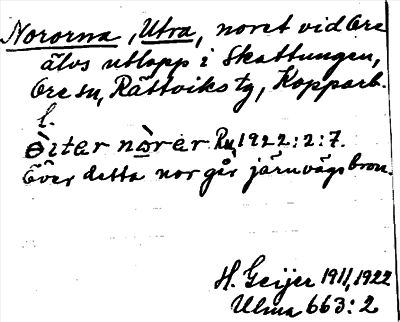 Nororna, Utra, noret vid Ore
älvs utlopp i Skattungen,
Ore sn, Rättviks tg, Kopparb.
l.
òiter nòrer Ru, 1922:2:7.
Över detta nor går järnvägsbron.
H. Geijer 1911, 1922
Ulma 663:2